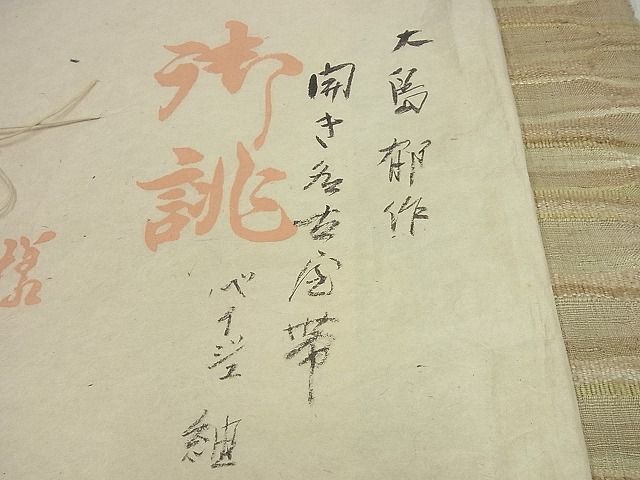 大島郁作
開き名古屋帯
ベイジュ 紬
御誂
様